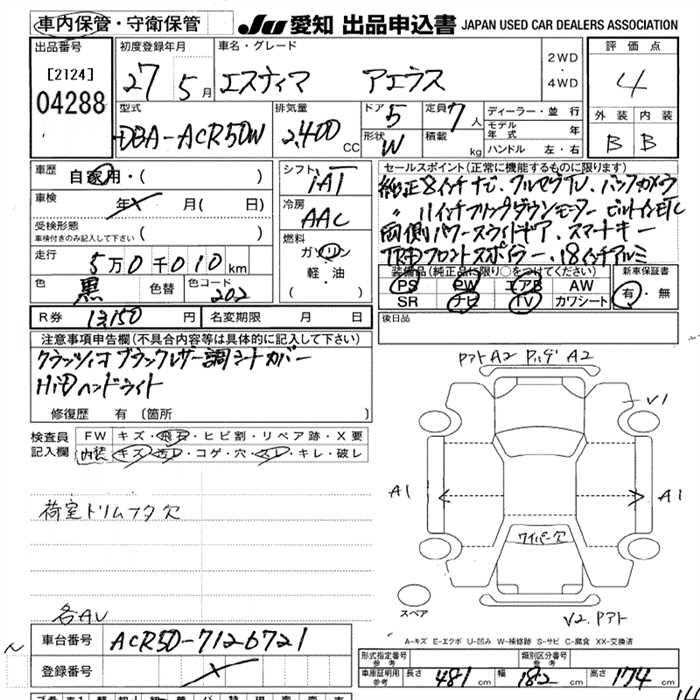 車内保管・守衛保管
JU 愛知 出品申込書 JAPAN USED CAR DEALERS ASSOCIATION
出品番号
[2124]
04288
初度登録年月
27 5月
車名・グレード
エスティマ アエラス
2WD
・
4WD
評価点
4
外装 内装
B B
型式
DBA-ACR50W
排気量
2,400 CC
ドア 5
形状 W
定員 7人
積載 kg
ディーラー・並行
モデル年式 年
ハンドル 左・右
車歴
自家用・( )
車検
年 月( 日)
受検形態
車検付きのみ記入して下さい ( )
走行
5万0千010km
色 黒 色替 色コード 202
シフト
iAT
冷房
AAC
燃料
ガソリン
軽・油
( )
セールスポイント(正常に機能するものに限ります)
純正8インチナビ、フルセグTV、バックカメラ
〃 11インチフリップダウンモニター ビルトインETC
両側パワースライドドア、スマートキー
TRDフロントスポイラー、18インチアルミ
装備品(純正品に限り○をつけてください)
PS PW エアB AW
SR ナビ TV カワシート
新車保証書
有・無
R券 13150円 名変期限 月 日
後日品
注意事項申告欄(不具合内容等は具体的に記入して下さい)
クラッツィオ ブラックレザー調シートカバー
HiDヘッドライト
修復歴 有(箇所 )
検査員
記入欄
FW キズ・飛石・ヒビ割・リペア跡・X要
内装 キズ・汚レ・コゲ・穴・スレ・キレ・破レ
荷室トリムフタ欠
各AU
車台番号 ACR50-7126721
登録番号
リアトA2 A2
V1
A1
A1
ワイパー欠
スペア
V2.
A-キズ E-エクボ U-凹み W-補修跡 S-サビ C-腐食 XX-交換済
形式指定番号
参考
類別区分番号
参考
車庫証明用
参考
長さ 481cm 幅 182cm 高さ 174cm